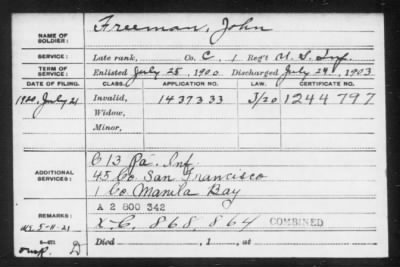 NAME OF SOLDIER: Freeman, John
SERVICE: Late rank, Co. C, 1 Reg't U.S. Inf.
TERM OF SERVICE: Enlisted July 25, 1900 Discharged July 24, 1903
DATE OF FILING. CLASS. APPLICATION NO. LAW. CERTIFICATE NO.
1920, July 21 Invalid, 1437333 J/20 1244797
Widow,
Minor,
ADDITIONAL SERVICES:
C 13 Pa. Inf.
45 Co San Francisco
1 Co Manila Bay
A 2 800 342
REMARKS: X C. 868,864 COMBINED
5-11-21
6-671
D Died , 1 , at